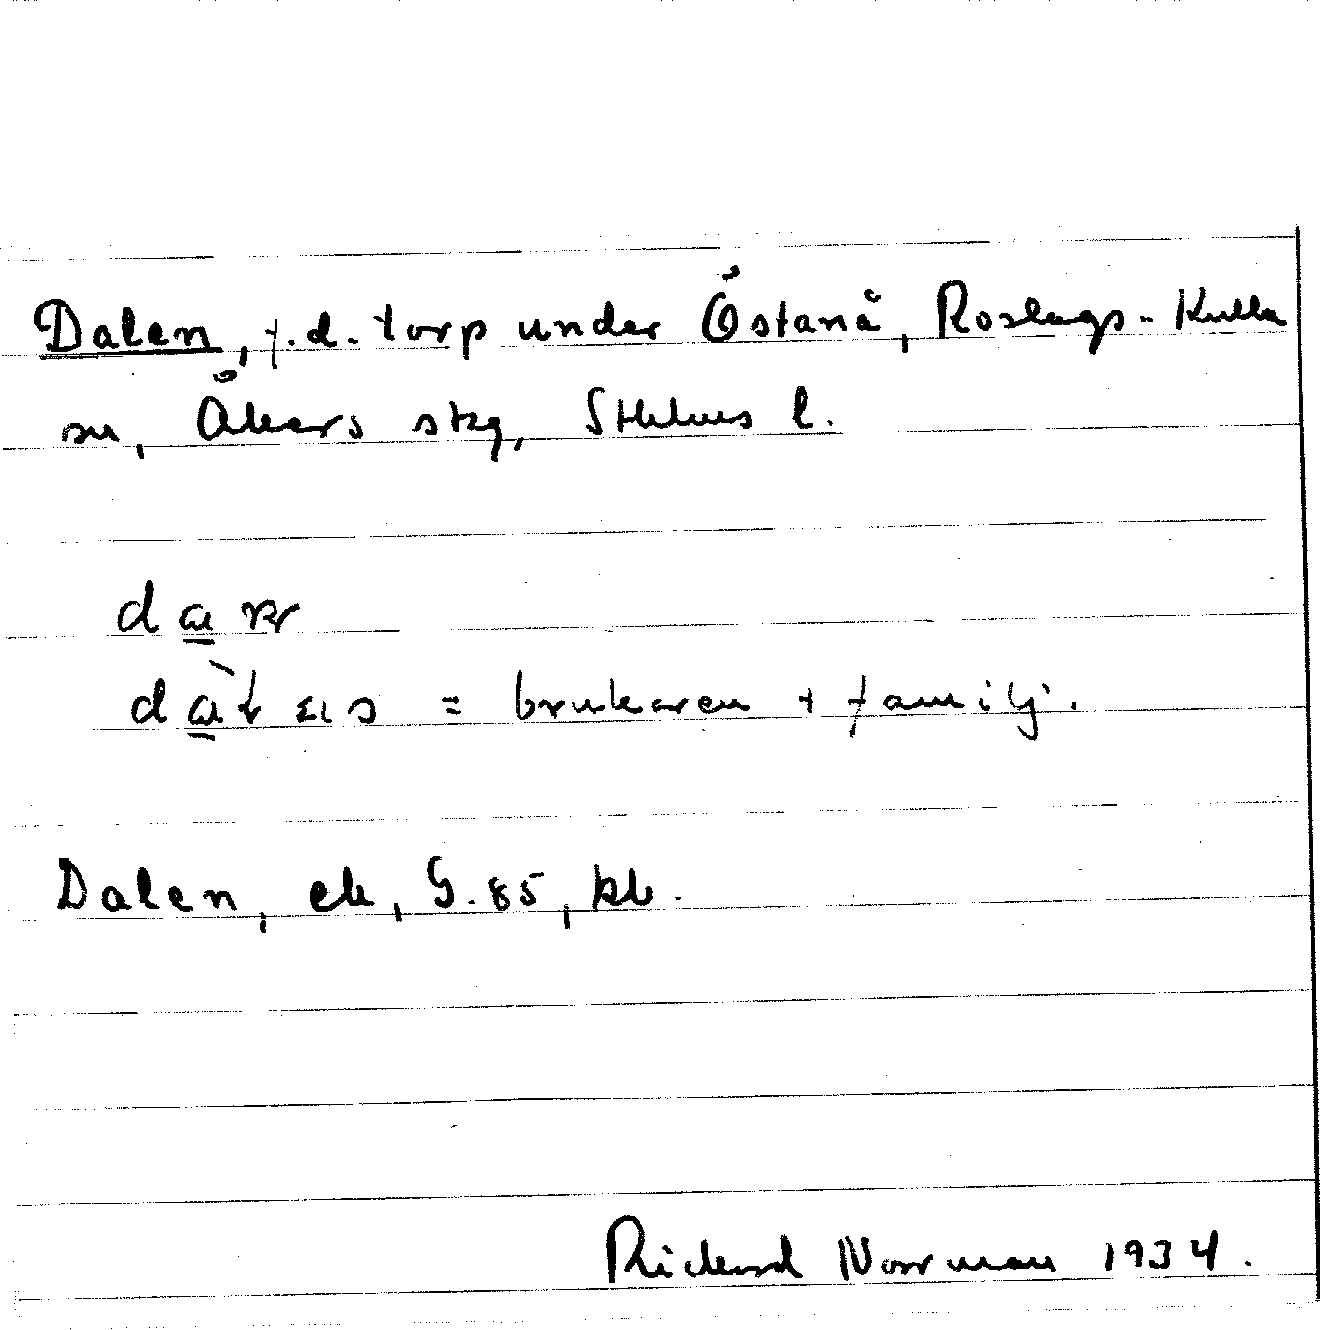 Dalen, f.d. torp under Östanå, Roslags-Kulla
sn, Åkers skg, Sthlms l.
= brukaren + familj.
Dalen, ek, G. 85, kb.
Rickard Norrman 1934.